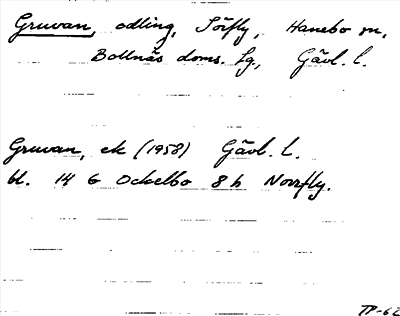 Gruvan, odling, Sörfly, Hanebo sn,
Bollnäs doms. Lg., Gävl. l.
Gruvan, ek (1958) Gävl. l.
bl. 14 G Ockelbo 8 h Norrfly.
TP-62